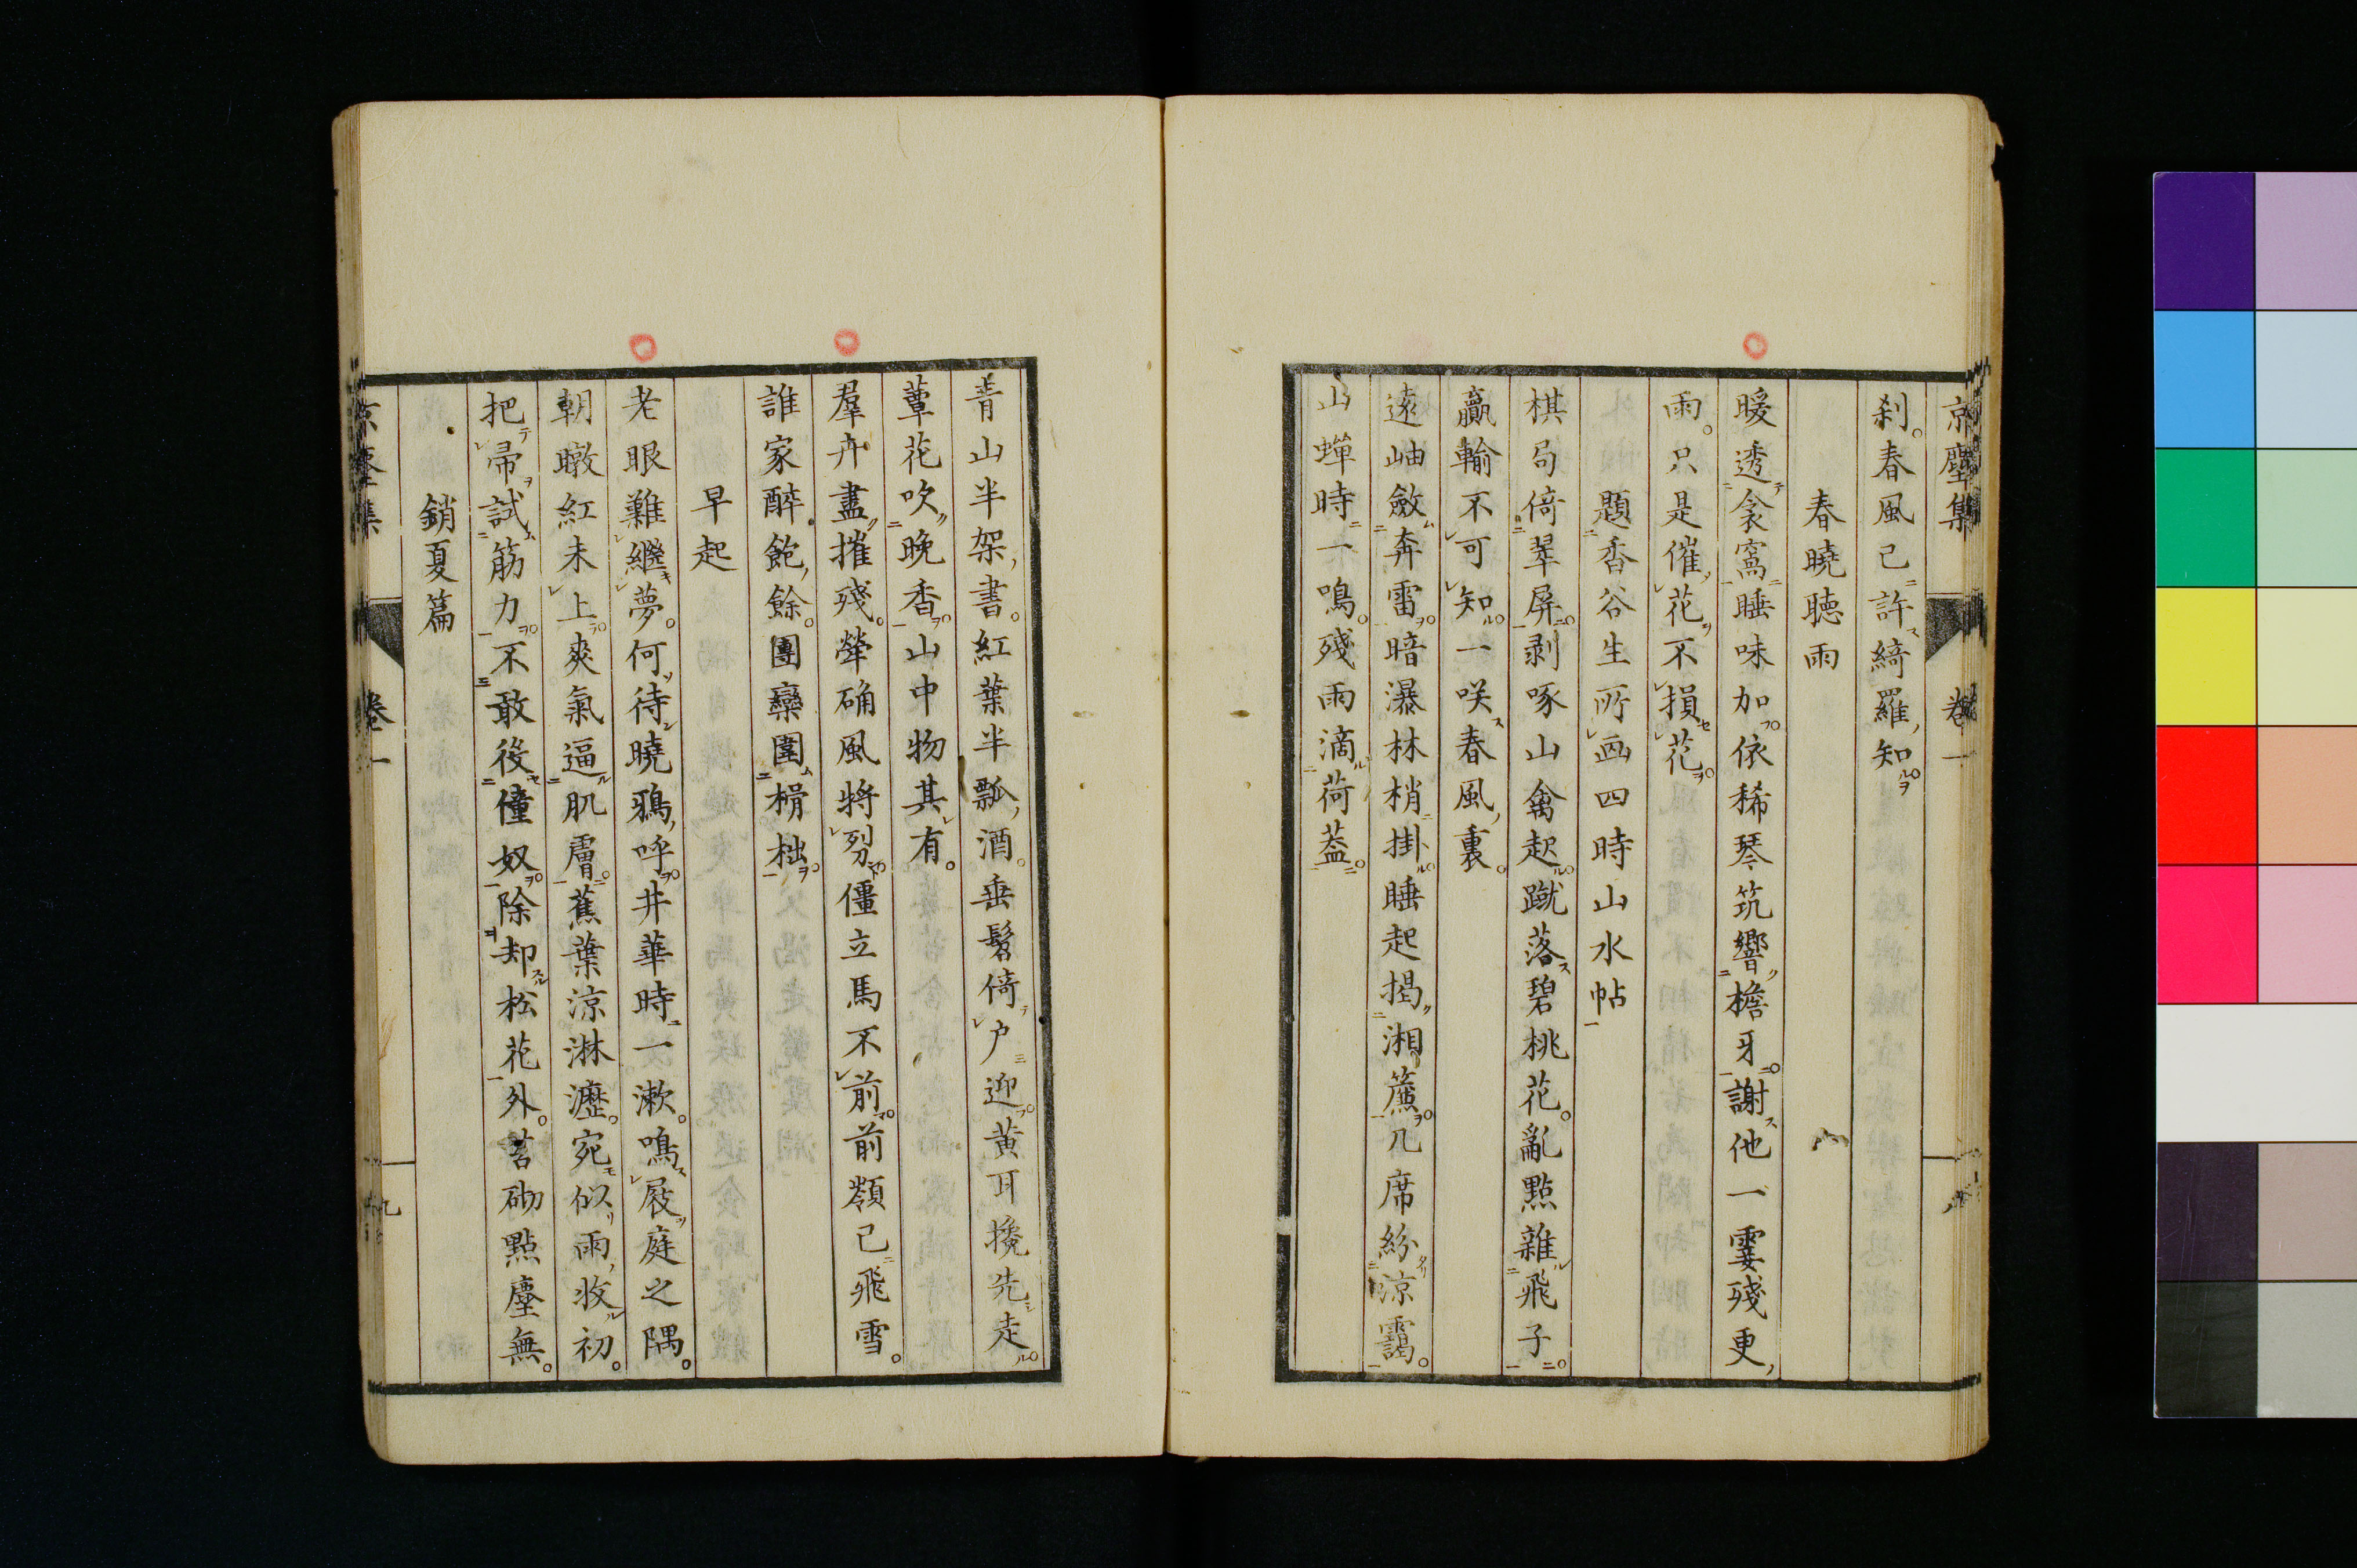 京塵集 卷一
刹。春風已許綺羅知。
春曉聽雨
暖透衾窩睡味加。依稀琴筑響檐牙。謝他一霎殘更
雨。只是催花不損花。
題香谷生所画四時山水帖
棋局倚翠屏。剥啄山禽起。蹴落碧桃花。亂點雜飛子。
贏輸不可知。一咲春風裏。
遠岫斂奔雷。暗瀑林梢掛。睡起揭湘簾。几席紛涼靄。
山蟬時一鳴。殘雨滴荷蓋。
青山半架書。紅葉半瓢酒。垂髫倚户迎。黄耳攙先走。
蕈花吹晚香。山中物其有。
羣卉盡摧殘。犖确風將裂。僵立馬不前。前嶺已飛雪。
誰家醉飽餘。團欒圍榾柮。
早起
老眼難繼夢。何待曉鴉呼。井華時一漱。鳴屐庭之隅。
朝暾紅未上。爽氣逼肌膚。蕉葉涼淋瀝。宛似雨收初。
把帚試筋力。不敢役僮奴。除却松花外。苔砌點塵無。
銷夏篇
京塵集 卷一 九